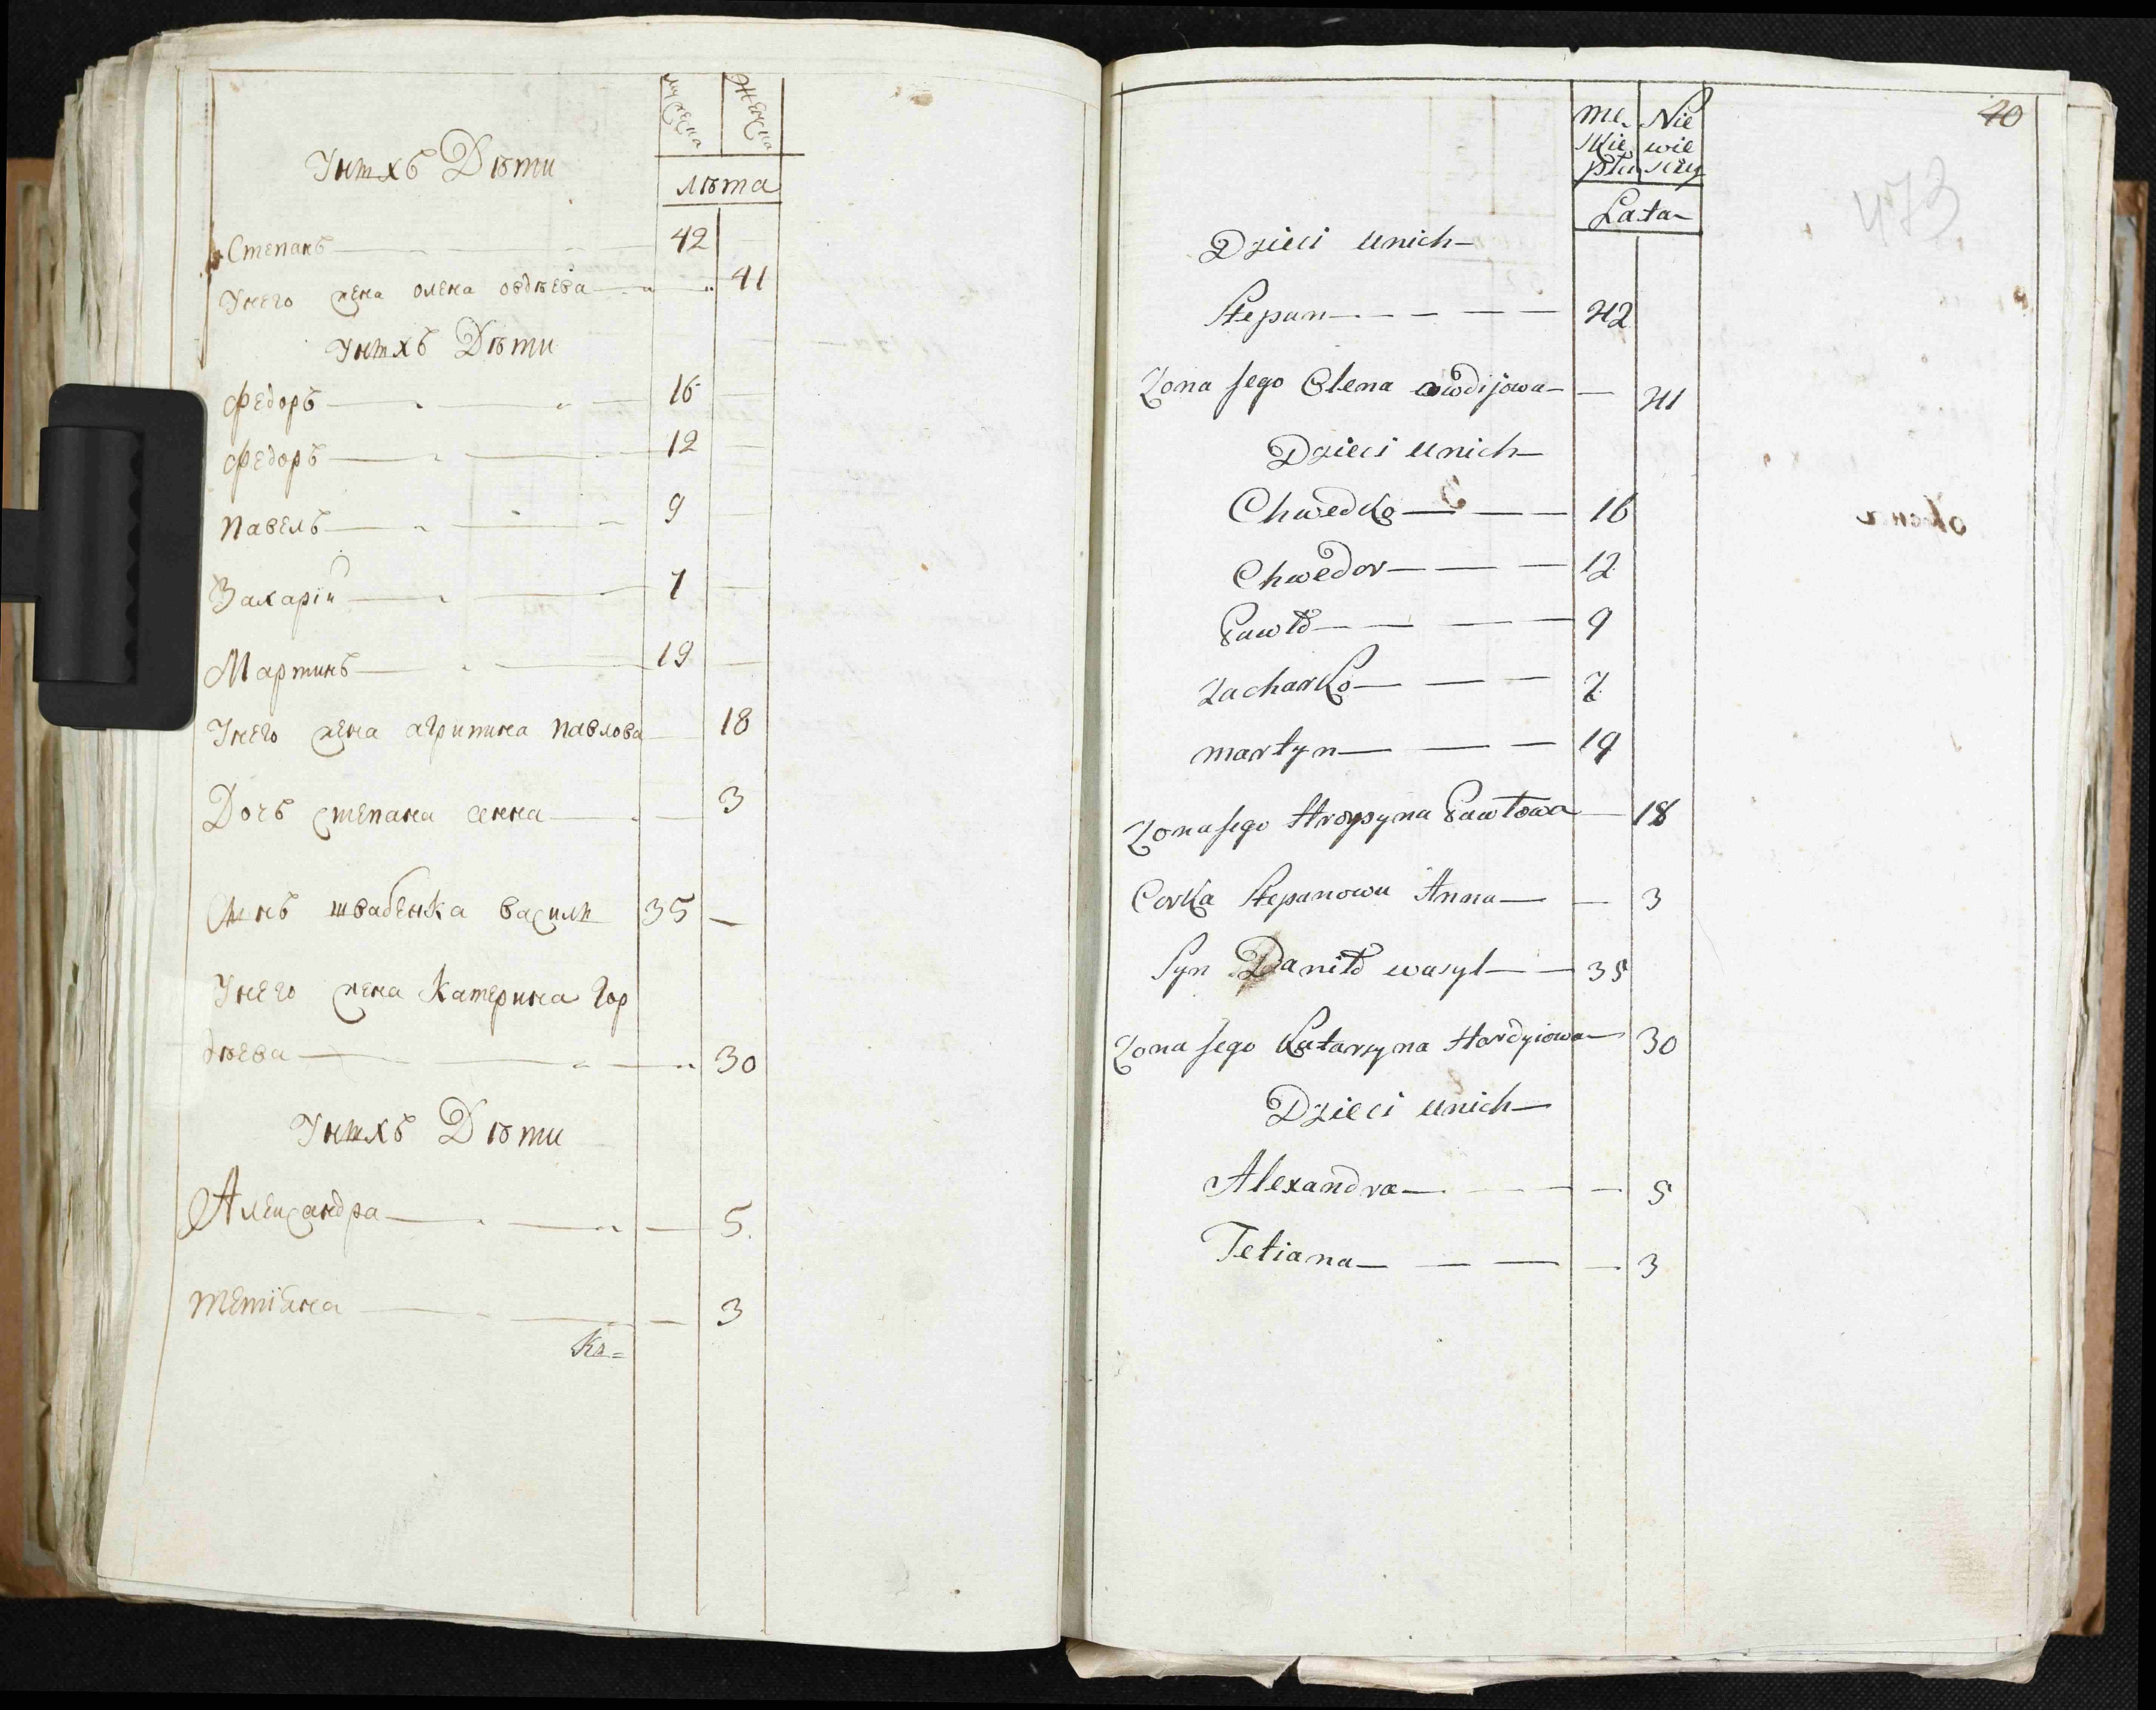 мужеска
женска
Унихъ Дѣти
лѣта
Степанъ 42
Унего жена олена овдѣева 41
Унихъ Дѣти
Федоръ 16
Федоръ 12
Павелъ 9
Захарій 7
Мартинъ 19
Унего жена агрипина Павлова 18
Дочь степана анна 3
Синъ швабенка василь 35
Унего жена Катерина Гор
дѣева 30
Унихъ Дѣти
Александра 5
Тетіяна 3
40
473
Me Nie
Skie wie
Lata
Dzieci unich
Stepan 42
Zona Jego Olena owdijowa 41
Dzieci unich
Chwedko 16
Chwedor 12
Pawło 9
Zacharko 7
martyn 19
Zona Jego Hrypyna Pawłowa 18
Corka Stepanowa Anna 3
Syn Daniło wasyl 35
Zona Jego Katarzyna Hordyiowa 30
Dzieci unich
Alexandra 5
Tetiana 3